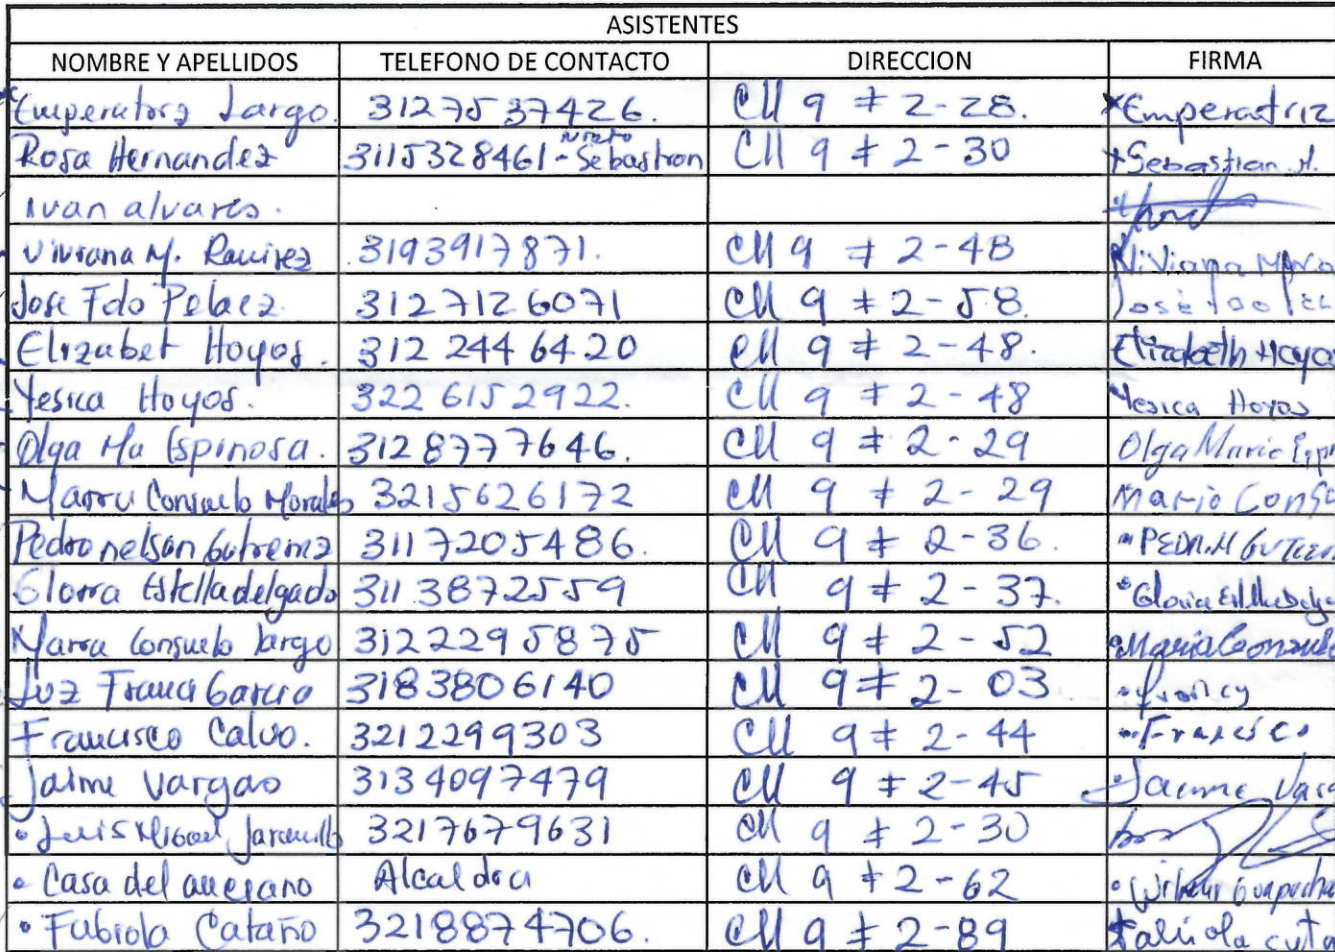 ASISTENTES
NOMBRE Y APELLIDOS TELEFONO DE CONTACTO DIRECCION FIRMA
Emperatriz Largo. 3127537426. Cll 9 # 2-28. Emperatriz
Rosa Hernandez 3115328461 - Nieto Sebastian Cll 9 # 2-30 Sebastian H.
Ivan alvares.
Viviana M. Ramirez 3193917871. Cll 9 # 2-48 Viviana
Jose Fdo Pelaez. 3127126071 Cll 9 # 2-58. José fdo
Elizabet Hoyos. 312 244 64 20 Cll 9 # 2-48. Elizabeth Hoyos
Yesica Hoyos. 322 6152922. Cll 9 # 2-48 Yesica Hoyos
Olga Ma Espinosa. 3128777646. Cll 9 # 2-29 Olga Maria
Maria Consuelo Morales 3215626172 Cll 9 # 2-29 Maria Cons
Pedro nelson Gutierrez 3117205486. Cll 9 # 2-36. PEDR.N GUTIERR
Gloria Estella delgado 311 3872559 Cll 9 # 2-37. Gloria
Maria Consuelo largo 3122295875 Cll 9 # 2-52 Maria Consuelo
Luz Franci Garcia 3183806140 Cll 9 # 2-03 francy
Francisco Calvo. 3212299303 Cll 9 # 2-44 Francisco
Jaime Vargas 3134097479 Cll 9 # 2-45 Jaime Varg
Luis Miguel Jaramillo 3217679631 Cll 9 # 2-30
Casa del anciano Alcaldia Cll 9 # 2-62
Fabiola Cataño 3218874706. Cll 9 # 2-89 Fabiola cata